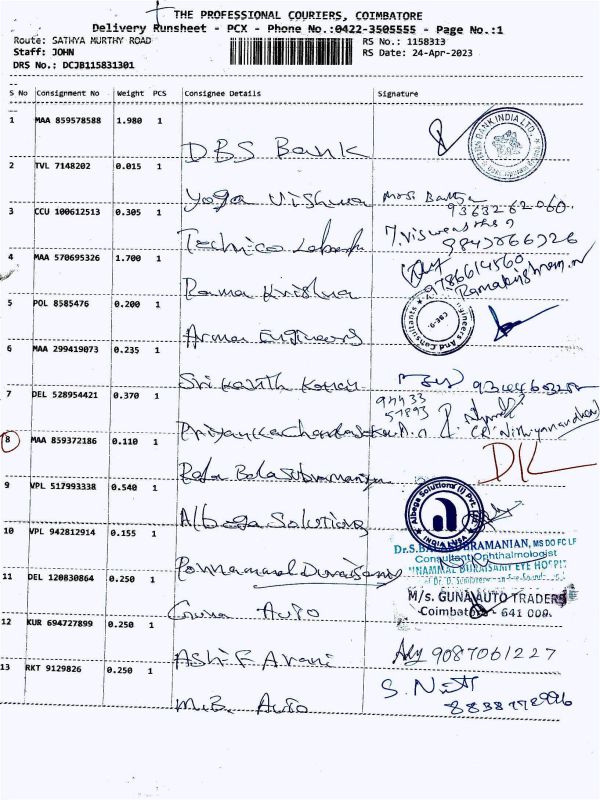 THE PROFESSIONAL COURIERS, COIMBATORE
Delivery Runsheet - PCX - Phone No.:0422-3505555 - Page No.:1
Route: SATHYA MURTHY ROAD
RS No.: 1158313
Staff: JOHN
RS Date: 24-Apr-2023
DRS No.: DCJB115831301
S No Consignment No Weight PCS Consignee Details Signature
1 MAA 859578588 1.980 1
DBS Bank
BANK INDIA LTD.
2 TVL 7148202 0.015 1
Yoga Vishwa
9363262060
3 CCU 100612513 0.305 1
Technico
4 MAA 570695326 1.700 1
Rama Krishna
9786614560
Ramakrishnan.n
5 POL 8585476 0.200 1
Engineers
Engineers And Consultants
CBE-
6 MAA 299419073 0.235 1
Srikanth Kumar
7 DEL 528954421 0.370 1
94433
57893
8 MAA 859372186 0.110 1
Balasubramaniyan
DK
9 VPL 517993338 0.540 1
Albega Solutions
Albega Solutions (I) Pvt. Ltd.
INDIA USA
10 VPL 942812914 0.155 1
Ponnammal Duraisamy
Dr.S.BALASUBRAMANIAN, MS DO FC LF
Consultant Ophthalmologist
PONNAMMAL DURAISAMY EYE HOSPITAL
11 DEL 120830864 0.250 1
Guna Auto
M/s. GUNA AUTO TRADERS
Coimbatore - 641 009.
12 KUR 694727899 0.250 1
Ashif Arani
9087061227
13 RKT 9129826 0.250 1
M.B. Auto
S.